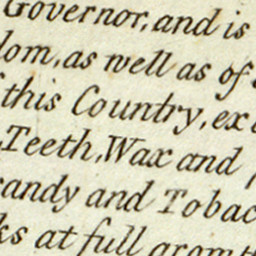 Governor, and is
dom, as well as of
this Country, ex
Teeth, Wax and
andy and Tobac
ks at full